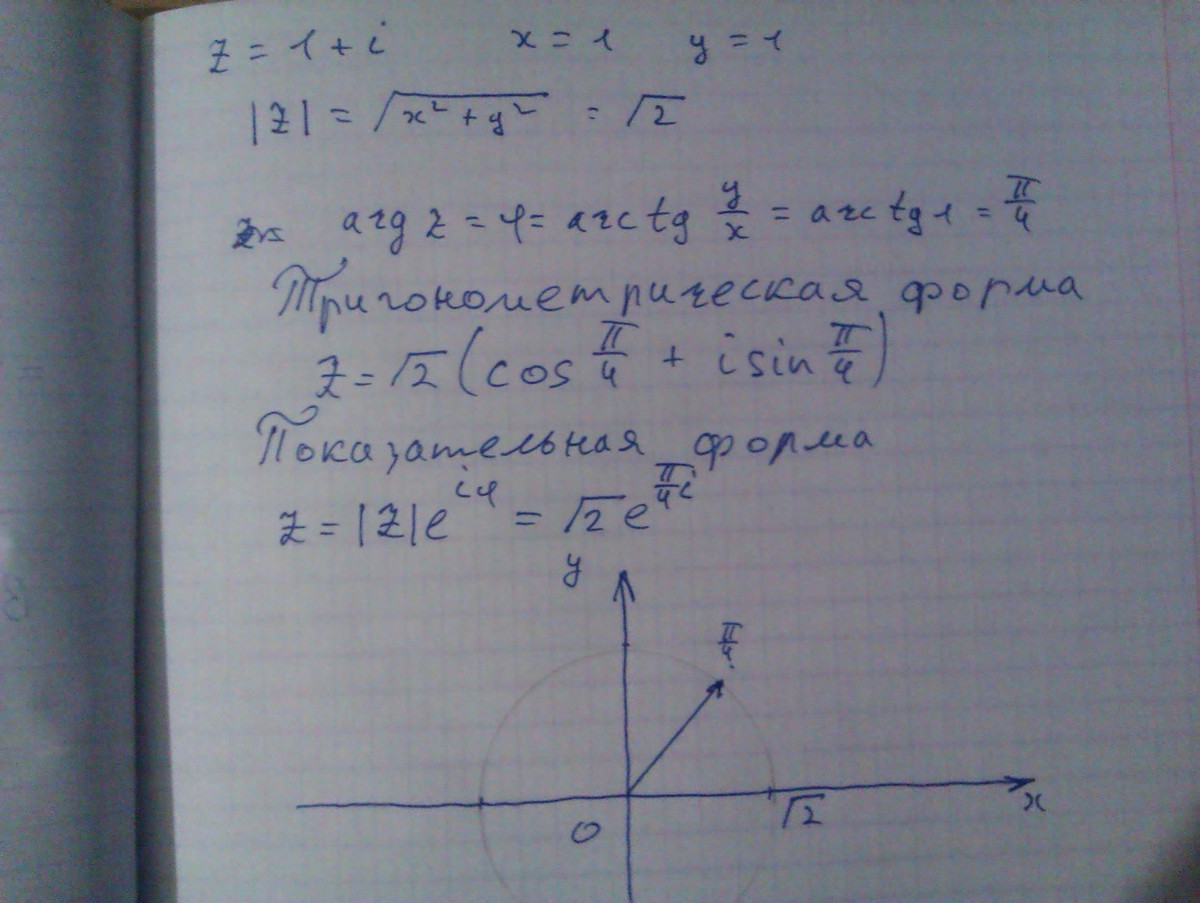 z = 1 + i x = 1 y = 1
|z| = √(x² + y²) = √2
arg z = φ = arctg y/x = arctg 1 = π/4
Тригонометрическая форма
z = √2 (cos π/4 + i sin π/4)
Показательная форма
z = |z| e^{iφ} = √2 e^{π/4 i}
y
π/4
0 √2 x